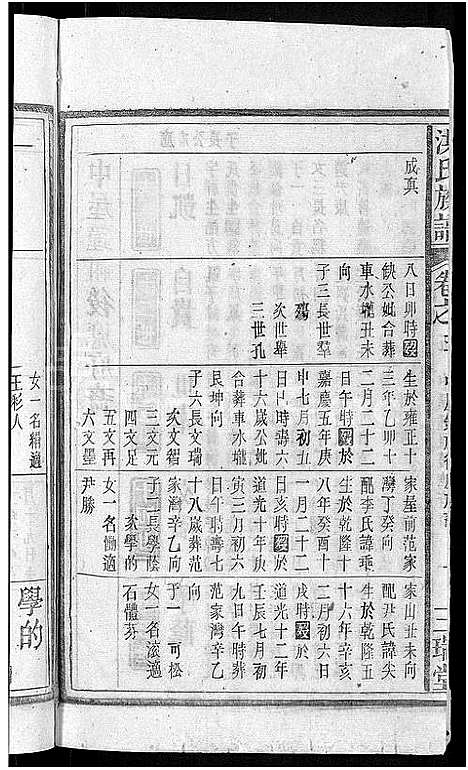 洪氏族譜
卷之
三瑞堂
成真
八日卯時歿
缺公妣合葬
車水壠丑未
向
子三長世羣
殤
次世舉
三世孔
生於雍正十
三年乙卯十
二月二十二
日午時歿於
嘉慶五年庚
申七月初五
日己時壽六
十六歲公妣
合葬車水壠
艮坤向
子六長文瑞
次文智
三文元
四文足
五文再
六文墨
家屋前范家
灣丁癸向
配李氏諱乘
生於乾隆十
八年癸酉十
一月二十二
日亥時歿於
道光十年庚
寅三月初六
日午時壽七
十八歲葬范
家灣辛乙向
子二長學蔭
次學的
女一名慟適
尹勝
家山丑未向
配尹氏諱尖
生於乾隆五
十六年辛亥
二月初六日
戌時歿於
道光十二年
壬辰七月初
九日午時葬
范家灣辛乙
向
子一 可松
女一名滋適
石體芬
女一名適
王彩人
學的